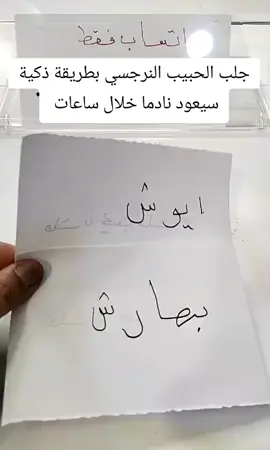 اتساب فقط
جلب الحبيب النرجسي بطريقة ذكية
سيعود نادما خلال ساعات
ايوش
بهارش